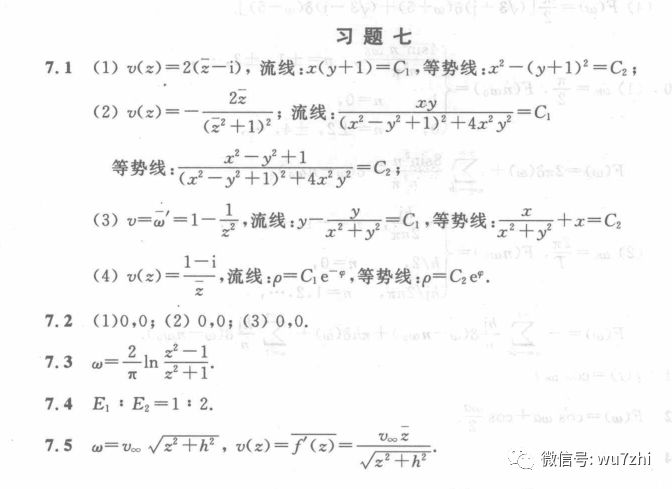 习题七
7.1 (1) v(z)=2(z̅-i), 流线:x(y+1)=C₁,等势线:x²-(y+1)²=C₂;
(2) v(z)=-2z̅/(z̅²+1)²; 流线:xy/((x²-y²+1)²+4x²y²)=C₁
等势线:(x²-y²+1)/((x²-y²+1)²+4x²y²)=C₂;
(3) v=ω̅′=1-1/z̅²,流线:y-y/(x²+y²)=C₁,等势线:x/(x²+y²)+x=C₂
(4) v(z)=(1-i)/z̅,流线:ρ=C₁e^(-φ),等势线:ρ=C₂e^φ.
7.2 (1)0,0; (2) 0,0; (3) 0,0.
7.3 ω=2/π ln (z²-1)/(z²+1).
7.4 E₁:E₂=1:2.
7.5 ω=v∞√(z²+h²), v(z)=f′(z)̅=v∞z̅/√(z̅²+h²).
微信号: wu7zhi